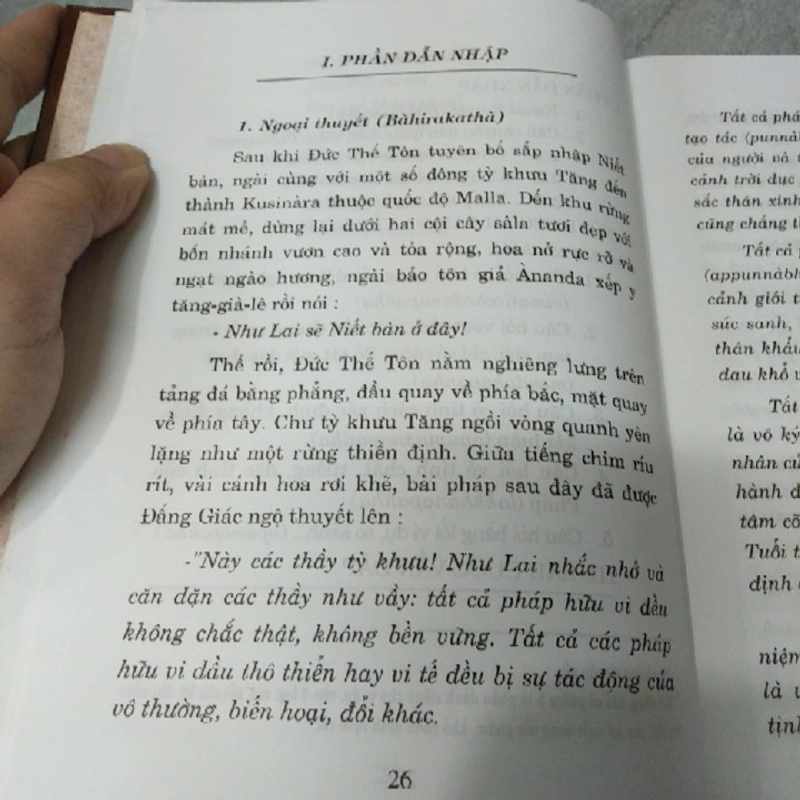 I. PHẦN DẪN NHẬP
1. Ngoại thuyết (Bàhirakathà)
Sau khi Đức Thế Tôn tuyên bố sắp nhập Niết
bàn, ngài cùng với một số đông tỳ khưu Tăng đến
thành Kusinàra thuộc quốc độ Malla. Đến khu rừng
mát mẻ, dừng lại dưới hai cội cây sàla tươi đẹp với
bốn nhánh vươn cao và tỏa rộng, hoa nở rực rỡ và
ngạt ngào hương, ngài bảo tôn giả Ànanda xếp y
tăng-già-lê rồi nói :
- Như Lai sẽ Niết bàn ở đây!
Thế rồi, Đức Thế Tôn nằm nghiêng lưng trên
tảng đá bằng phẳng, đầu quay về phía bắc, mặt quay
về phía tây. Chư tỳ khưu Tăng ngồi vòng quanh yên
lặng như một rừng thiền định. Giữa tiếng chim ríu
rít, vài cánh hoa rơi khẽ, bài pháp sau đây đã được
Đấng Giác ngộ thuyết lên :
-"Này các thầy tỳ khưu! Như Lai nhắc nhở và
căn dặn các thầy như vầy: tất cả pháp hữu vi đều
không chắc thật, không bền vững. Tất cả các pháp
hữu vi dầu thô thiển hay vi tế đều bị sự tác động của
vô thường, biến hoại, đổi khác.
26
Tất cả phá
tạo tác (punnà
của người và t
cảnh trời dục
sắc thân xinh
cũng chẳng th
Tất cả p
(appunnàbh
cảnh giới t
súc sanh,
thân khẩu
đau khổ v
Tất
là vô ký
nhân củ
hành đ
tâm cõ
Tuổi t
định
niệm
là v
tịnh